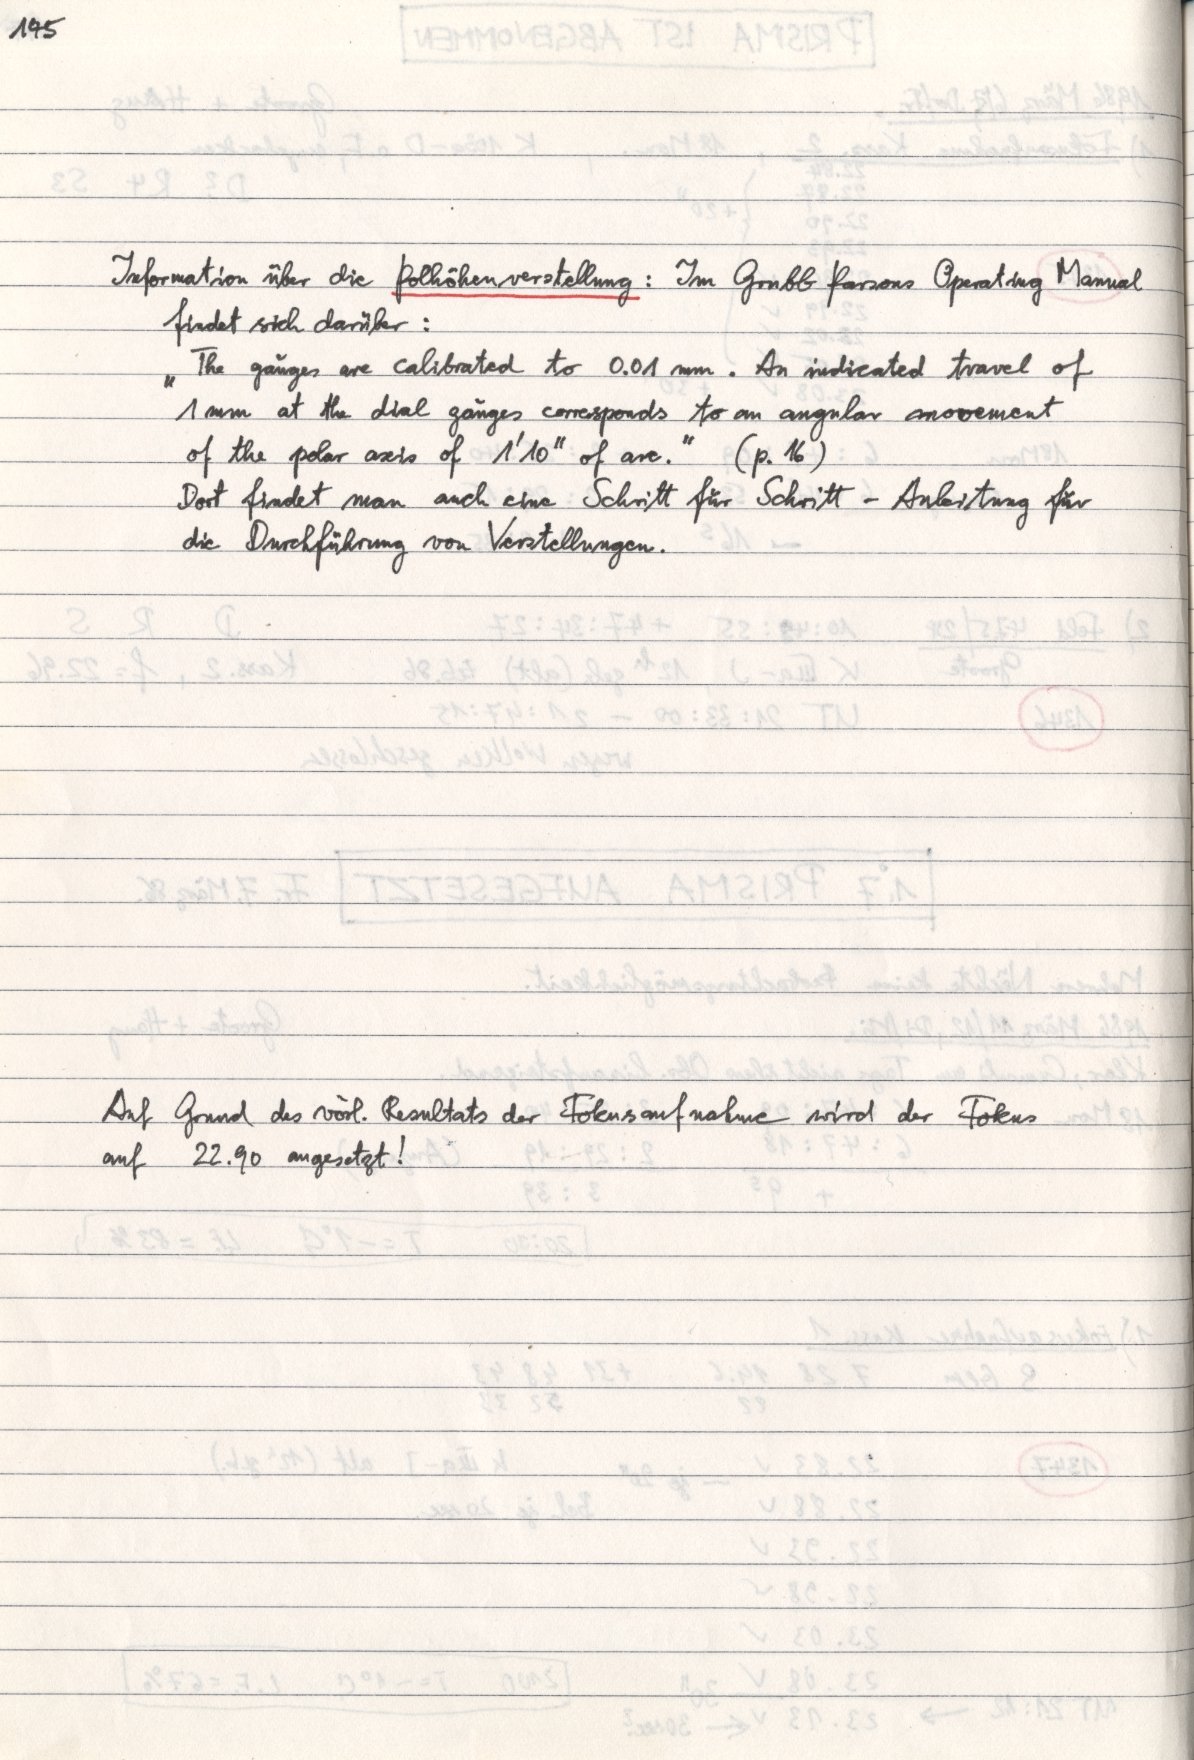 195
Information über die Polhöhenverstellung: Im Grubb Parsons Operating Manual
findet sich darüber:
„The gauges are calibrated to 0.01 mm. An indicated travel of
1 mm at the dial gauges corresponds to an angular movement
of the polar axis of 1'10" of arc." (p. 16)
Dort findet man auch eine Schritt für Schritt - Anleitung für
die Durchführung von Verstellungen.
Auf Grund des vorl. Resultats der Fokusaufnahme wird der Fokus
auf 22.90 angesetzt!